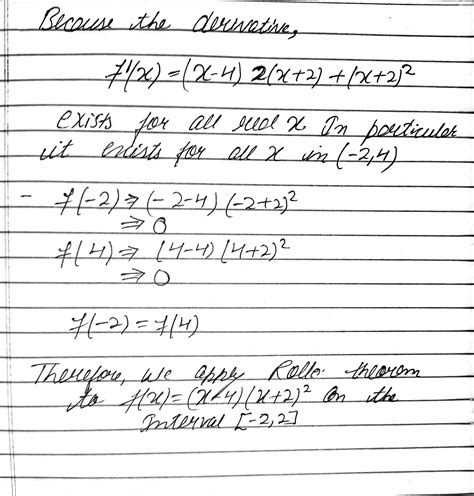 Because the derivative,
f'(x) = (x-4) 2(x+2) + (x+2)²
exists for all real x In particular
it exists for all x in (-2,4)
- f(-2) ⇒ (-2-4) (-2+2)²
⇒ 0
f(4) ⇒ (4-4) (4+2)²
⇒ 0
f(-2) = f(4)
Therefore, we apply Rolle theorom
to f(x) = (x-4) (x+2)² on the
Interval [-2,2]